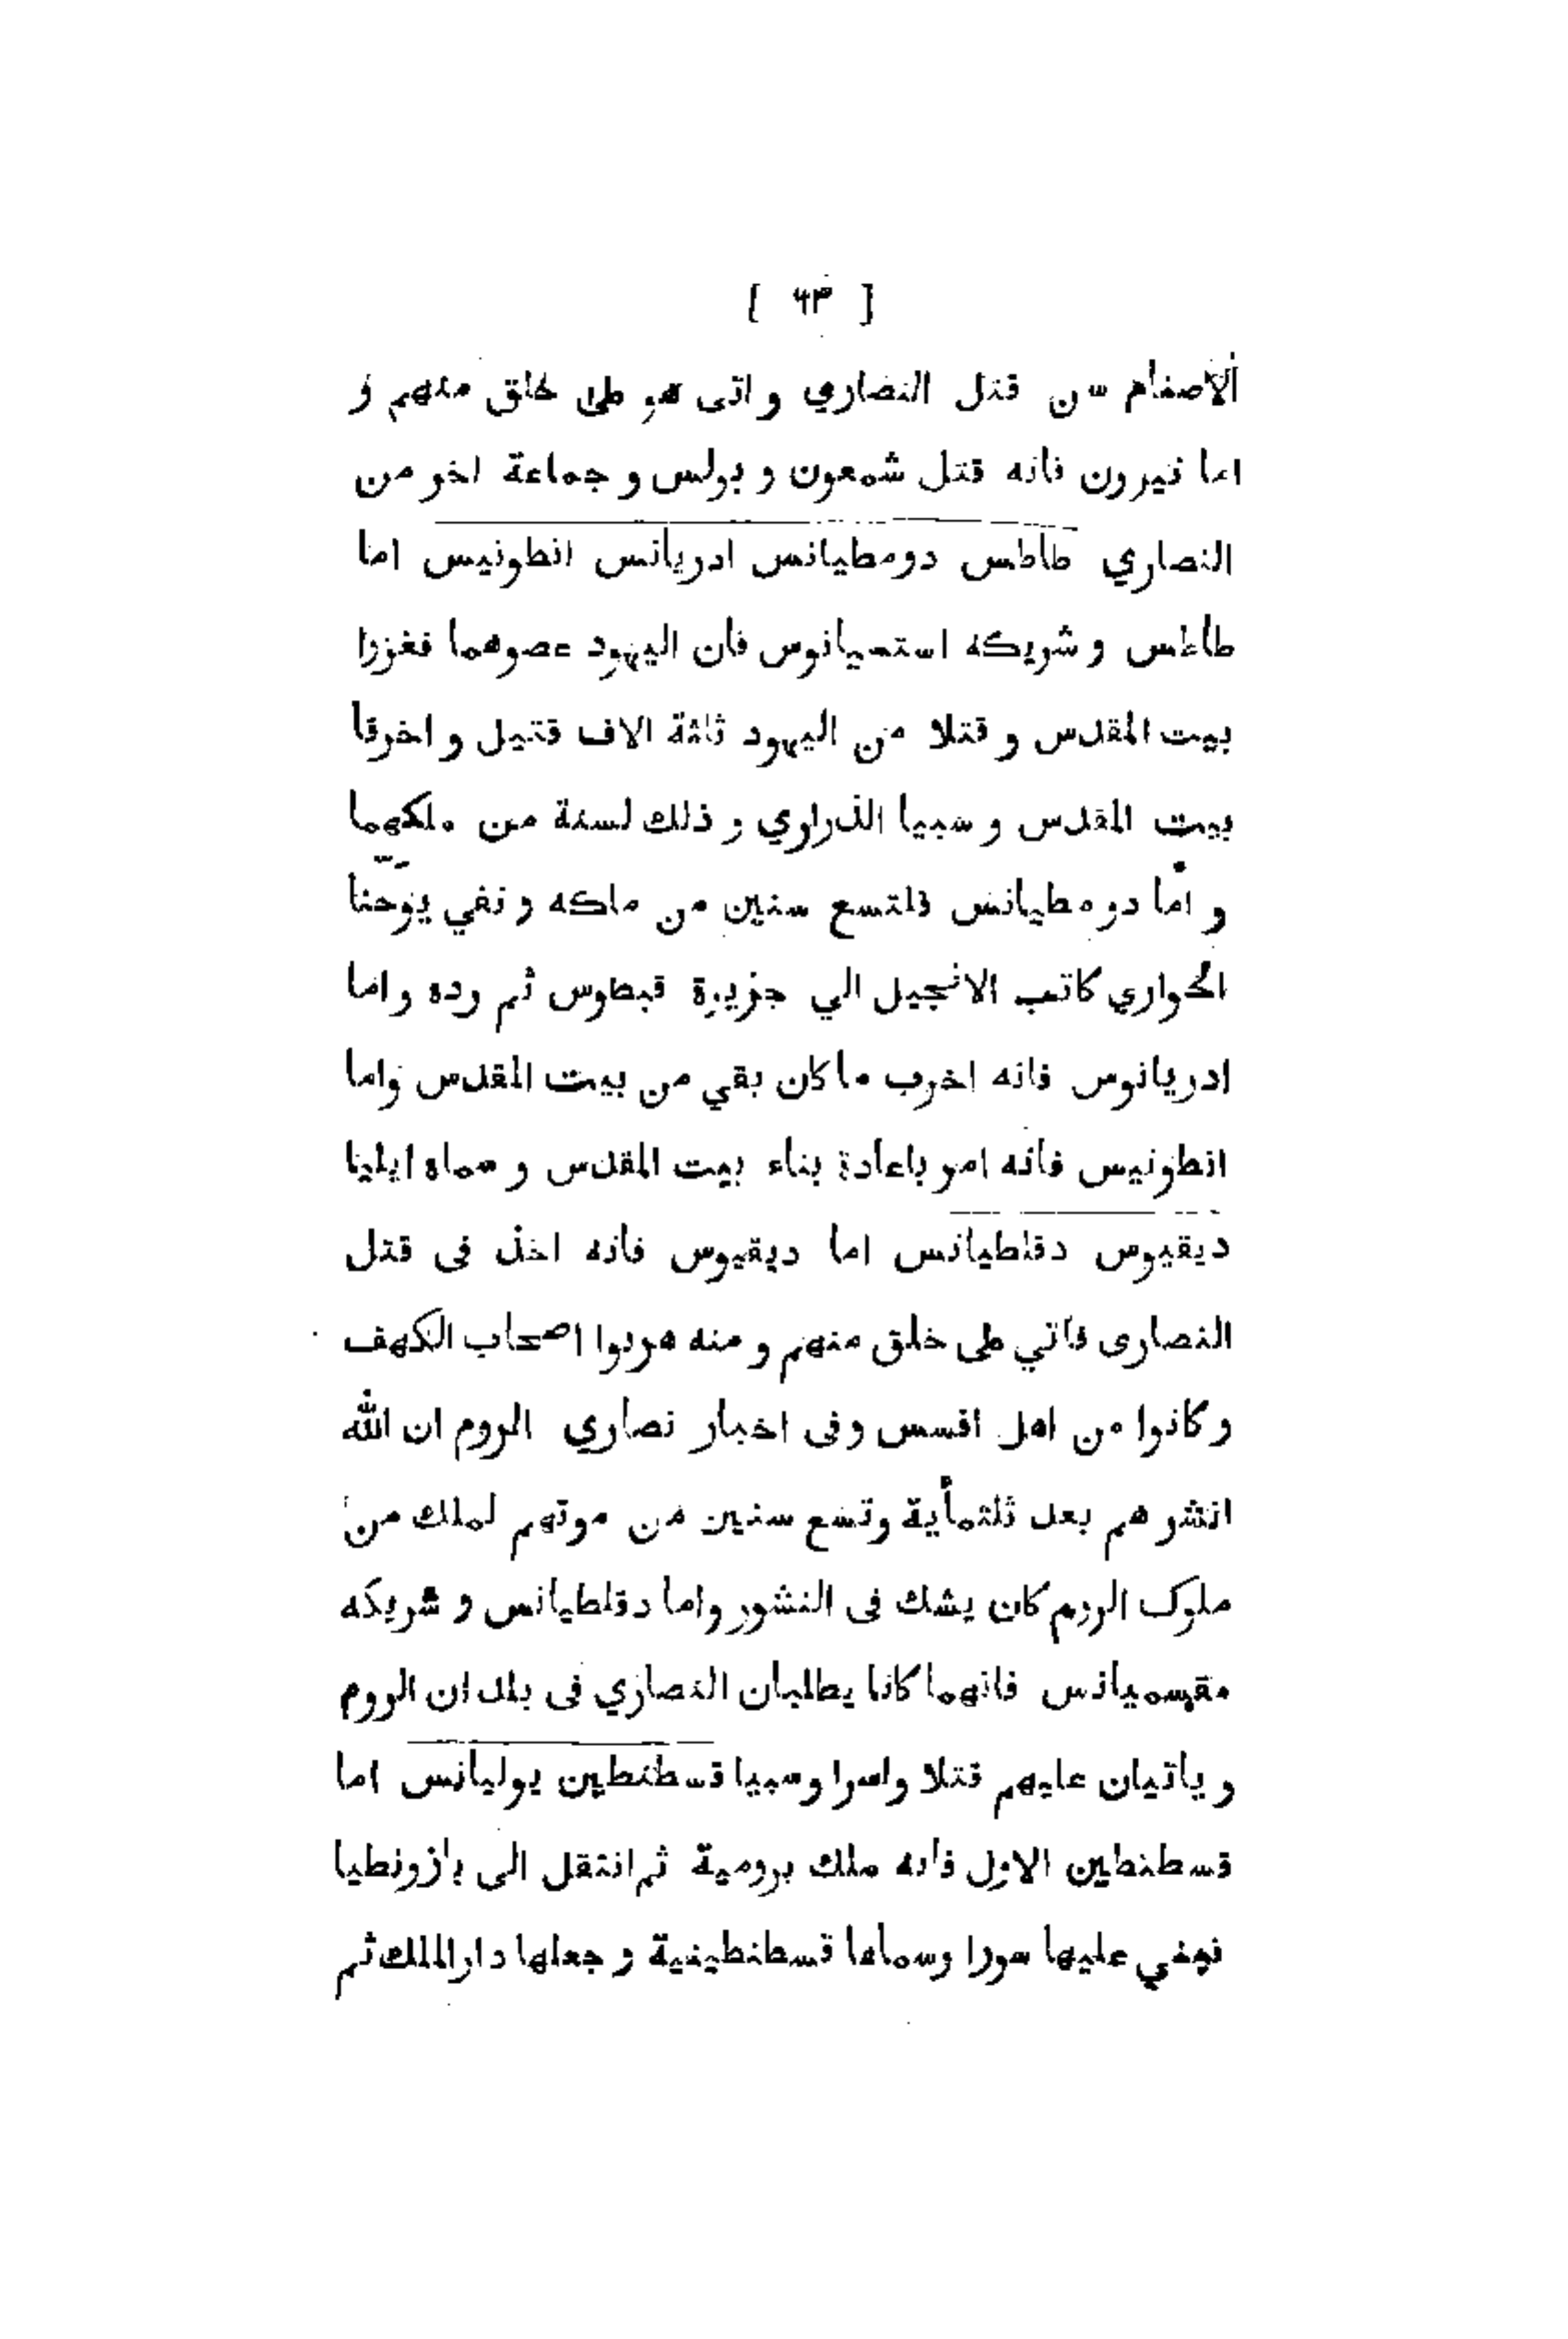 [ ٦٣ ]
الاصنام سن قتل النصاري و اتى هو على خلق منهم و
اما نيرون فانه قتل شمعون و بولس و جماعة اخر من
النصاري طاطس دومطيانس ادريانس انطونيس اما
طاطس و شريكه استسيانوس فان اليهود عصوهما فغزرا
بيت المقدس و قتلا من اليهود ثلثة الاف قتيل و اخرقا
بيت المقدس و سبيا الذراري و ذلك لسنة من ملكهما
و اما دومطيانس فلتسع سنين من ملكه و نفي يوحنا
الحواري كاتب الانجيل الي جزيرة قبطوس ثم رده و اما
ادريانوس فانه اخرب ما كان بقي من بيت المقدس واما
انطونيس فانه امر باعادة بناء بيت المقدس و سماه ايليا
ديقيوس دقلطيانس اما ديقيوس فانه اخذ فى قتل
النصارى فاتي على خلق منهم و منه هربوا اصحاب الكهف
و كانوا من اهل افسس وفى اخبار نصاري الروم ان الله
انشرهم بعد ثلثمأية وتسع سنين من موتهم لملك من
ملوك الروم كان يشك فى النشور واما دقلطيانس و شريكه
مقسميانس فانهما كانا يطلبان النصاري فى بلدان الروم
و ياتيان عليهم قتلا واسرا وسبيا قسطنطين يوليانس اما
قسطنطين الاول فانه ملك برومية ثم انتقل الى بازونطيا
فبني عليها سورا وسماها قسطنطينية و جعلها دار الملك ثم